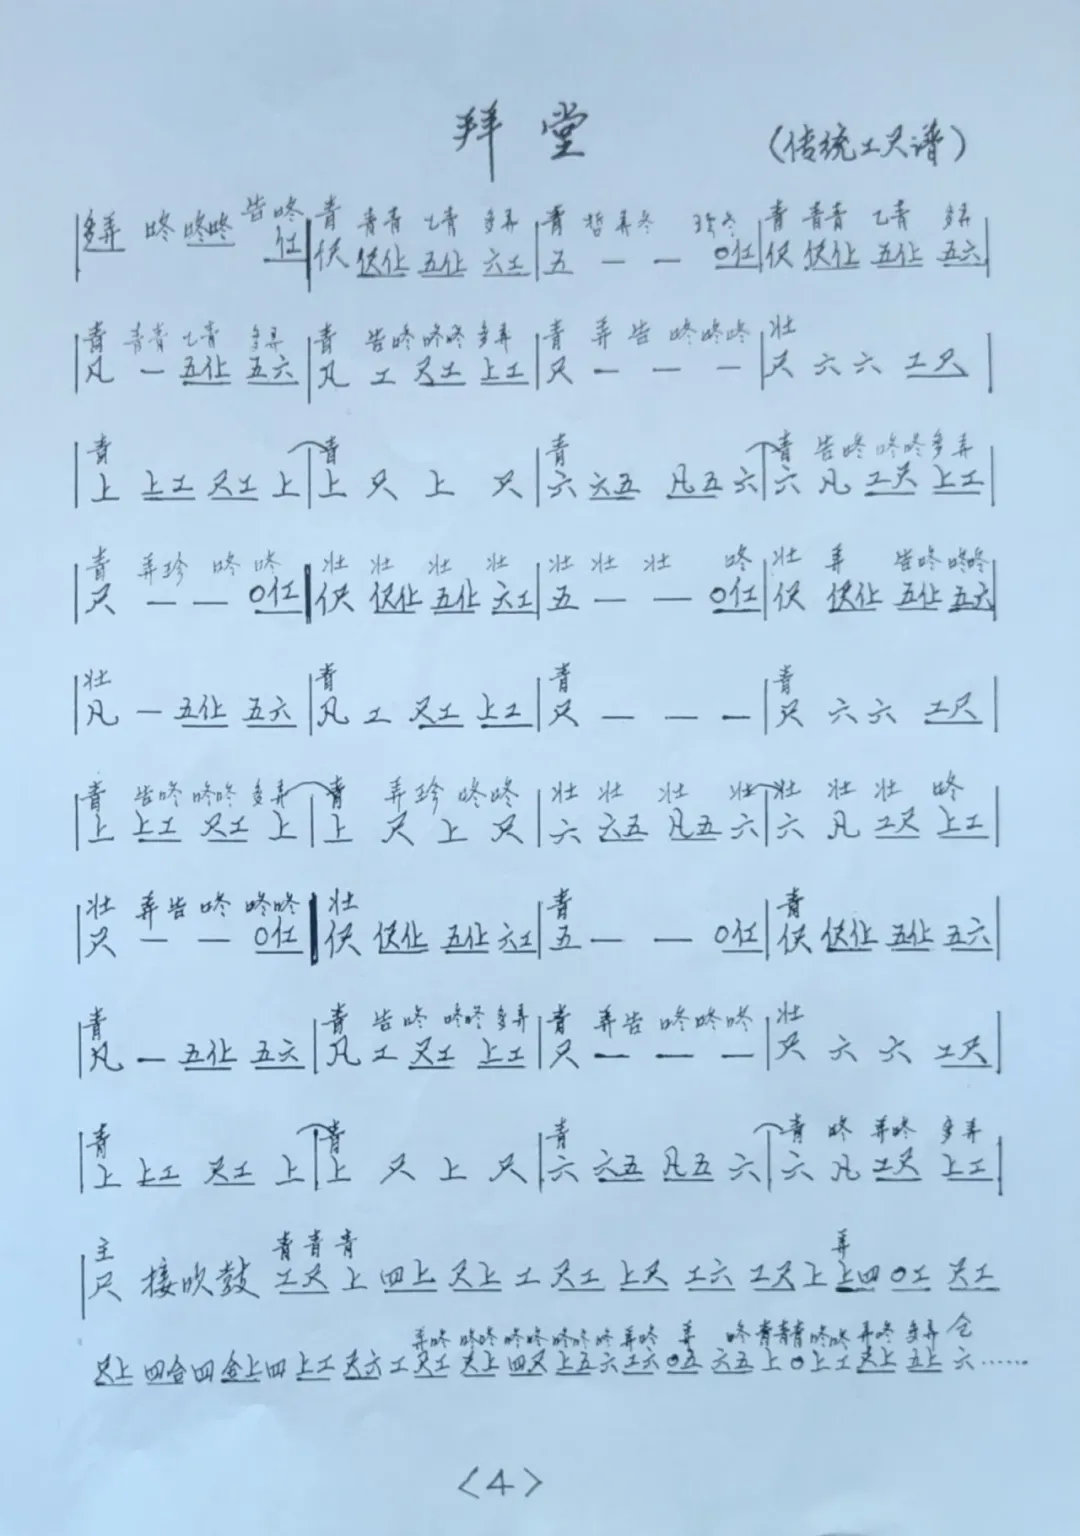 拜堂 (传统工尺谱)
多弄 咚 咚咚 告咚 青 青青 乙青 多弄 青 哲弄冬 珍冬 青 青青 乙青 多弄
仜 伬 伬仩 五仩 六工 五 — — 0仜 伬 伬仩 五仩 五六
青 青青 乙青 多弄 青 告咚 咚咚 多弄 青 弄告 咚咚咚 壮
凡 — 五仩 五六 凡 工 尺工 上工 尺 — — — 尺 六 六 工尺
青 青 青 青 告咚 咚咚 多弄
上 上工 尺工 上 上 尺 上 尺 六 六五 凡五 六 六 凡 工尺 上工
青 弄珍 咚 咚 壮 壮 壮 壮 壮 壮 壮 咚 壮 弄 告咚 咚咚
尺 — — 0仜 伬 伬仩 五仩 六工 五 — — 0仜 伬 伬仩 五仩 五六
壮 青 青 青
凡 — 五仩 五六 凡 工 尺工 上工 尺 — — — 尺 六 六 工尺
青 告咚 咚咚 多弄 青 弄珍 咚咚 壮 壮 壮 壮 壮 壮 壮 咚
上 上工 尺工 上 上 尺 上 尺 六 六五 凡五 六 六 凡 工尺 上工
壮 弄告 咚 咚咚 壮 青 青
尺 — — 0仜 伬 伬仩 五仩 六工 五 — — 0仜 伬 伬仩 五仩 五六
青 青 告咚 咚咚 多弄 青 弄告 咚咚咚 壮
凡 — 五仩 五六 凡 工 尺工 上工 尺 — — — 尺 六 六 工尺
青 青 青 青 咚 弄咚 多弄
上 上工 尺工 上 上 尺 上 尺 六 六五 凡五 六 六 凡 工尺 上工
主 青 青 青 弄
尺 接吹鼓 工尺 上 四上 尺上 工 尺工 上尺 工六 工尺 上 上四 0工 尺工
弄咚 咚咚 咚咚 咚咚咚 弄咚 弄 咚 青青青 咚咚 弄咚 多弄 仓
尺上 四合 四 合上 四 上工 尺六 工 尺工 尺上 四尺 上五 六 工六 0五 六五 上 0上 工 尺上 五上 六……
<4>